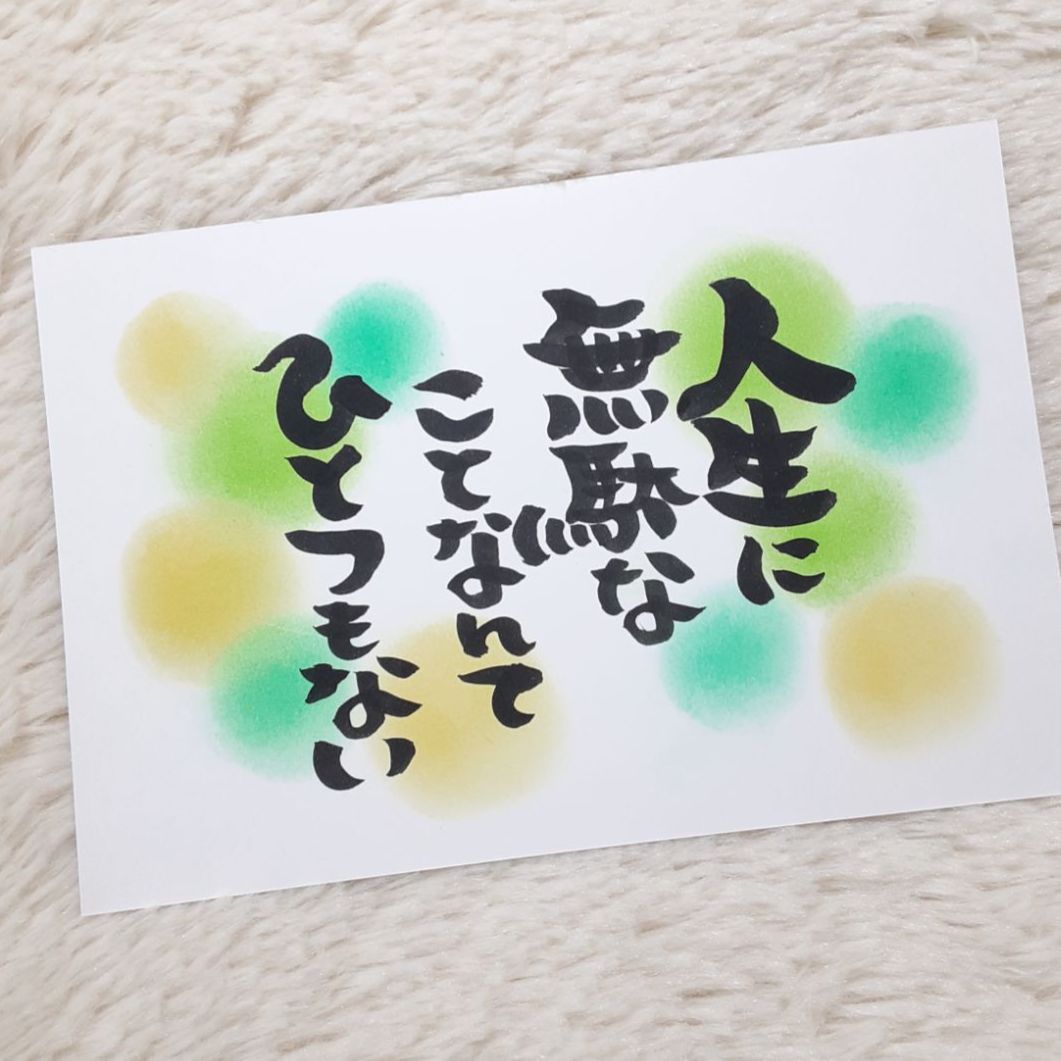 人生に
無駄な
ことなんて
ひとつもない